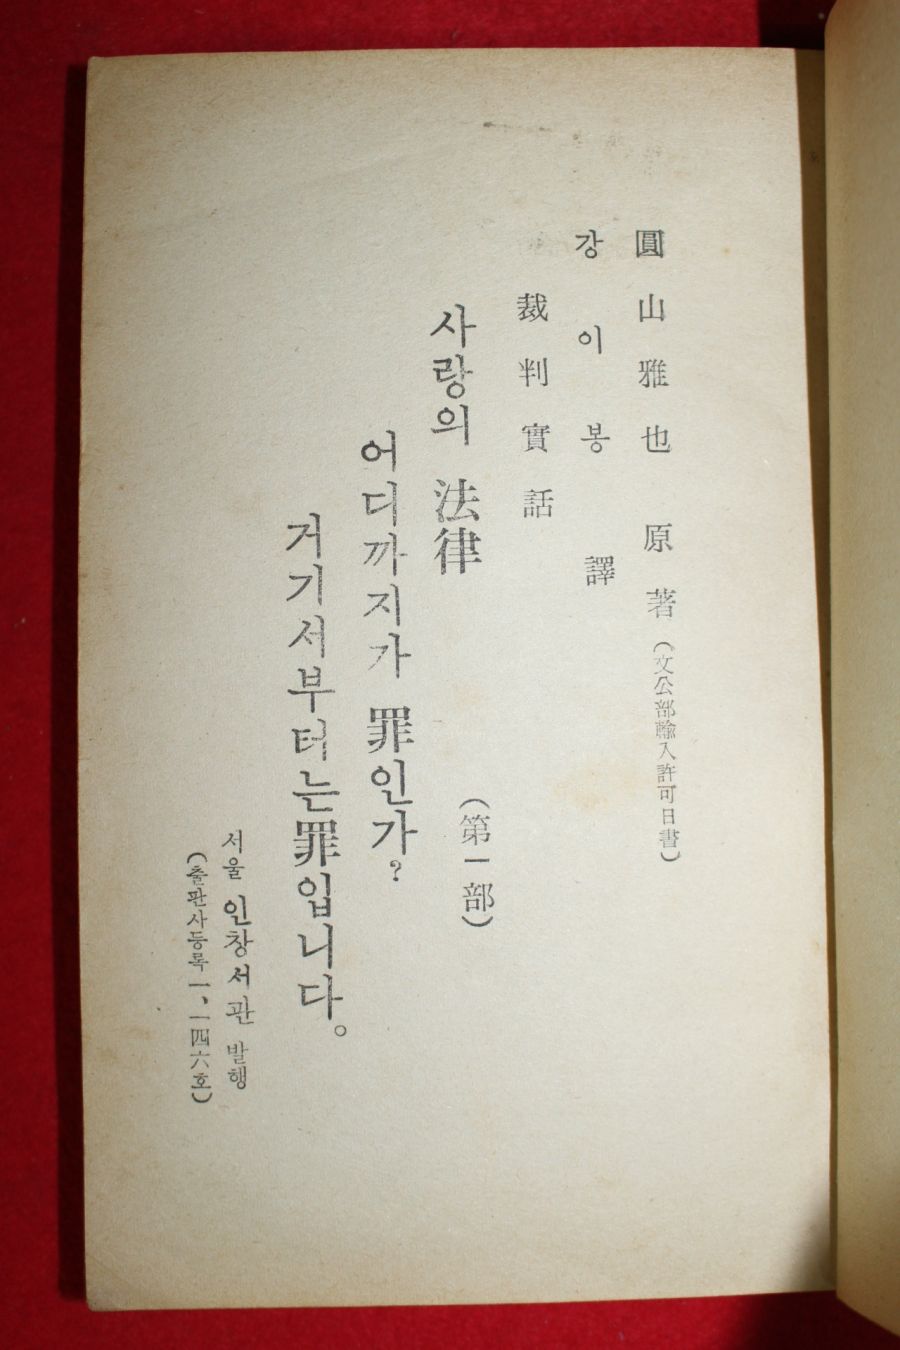 圓山雅也 原著(文公部輸入許可日書)
강이봉 譯
裁判實話
사랑의 法律 (第一部)
어디까지가 罪인가?
거기서부터는 罪입니다。
서울 인창서관 발행
(출판사등록 一、一四六호)